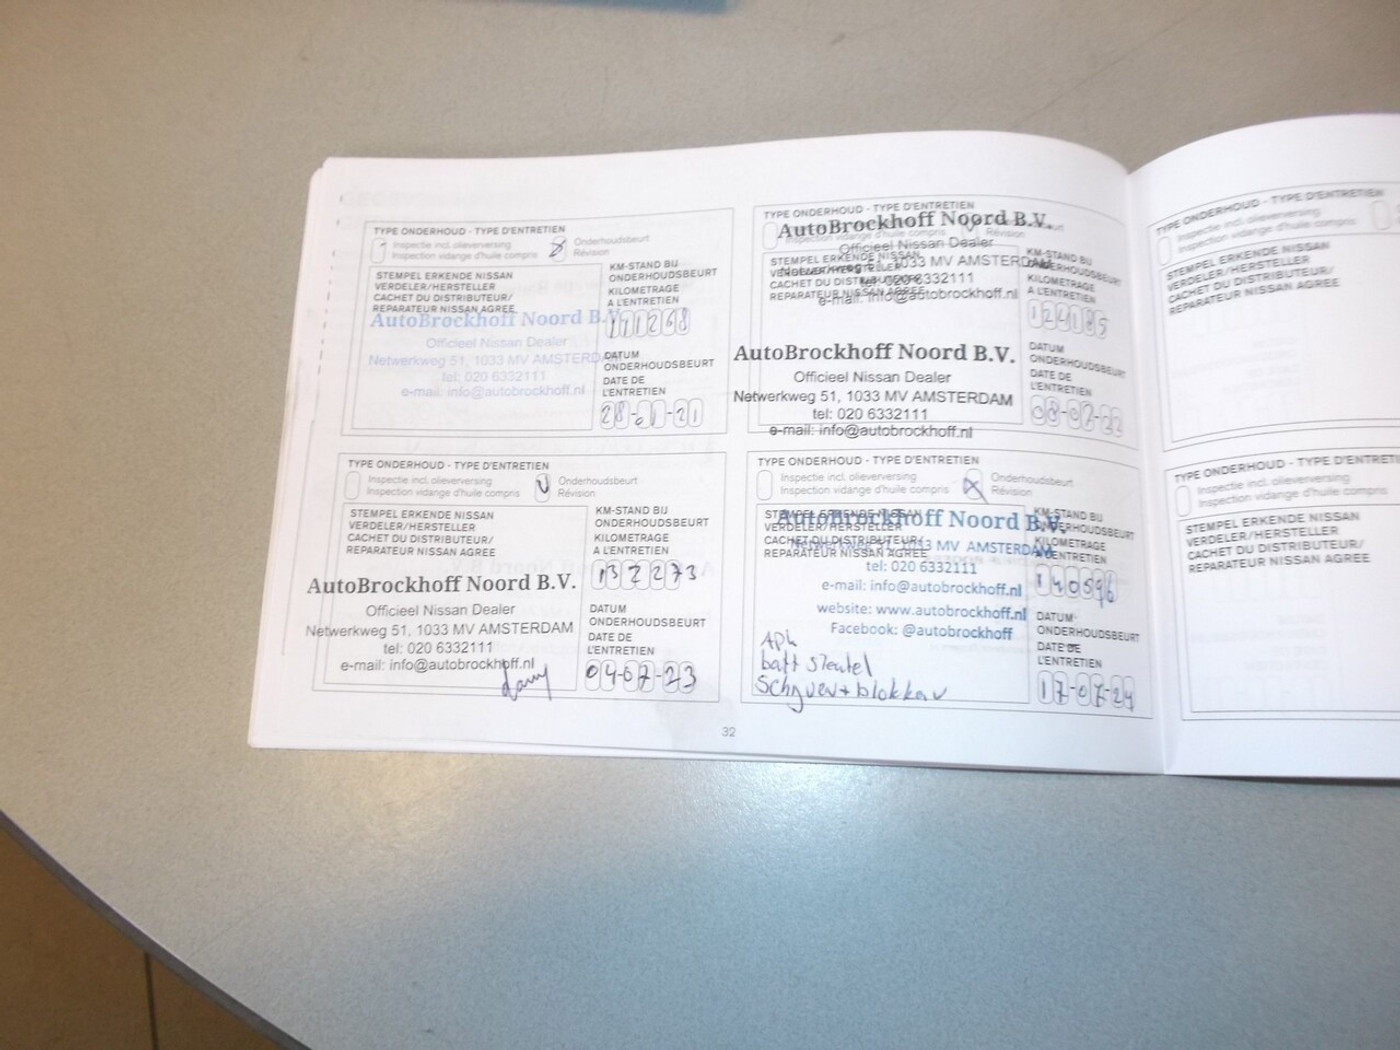 TYPE ONDERHOUD - TYPE D'ENTRETIEN
Inspectie incl. olieverversing
Inspection vidange d'huile compris
Onderhoudsbeurt
Révision
STEMPEL ERKENDE NISSAN
VERDELER/HERSTELLER
CACHET DU DISTRIBUTEUR/
REPARATEUR NISSAN AGREE
AutoBrockhoff Noord B.V.
Officieel Nissan Dealer
Netwerkweg 51, 1033 MV AMSTERDAM
tel: 020 6332111
e-mail: info@autobrockhoff.nl
KM-STAND BIJ
ONDERHOUDSBEURT
KILOMETRAGE
A L'ENTRETIEN
111268
DATUM
ONDERHOUDSBEURT
DATE DE
L'ENTRETIEN
28-01-21
TYPE ONDERHOUD - TYPE D'ENTRETIEN
AutoBrockhoff Noord B.V.
Inspection vidange d'huile compris
Révision
Officieel Nissan Dealer
STEMPEL ERKENDE NISSAN
VERDELER/HERSTELLER
Netwerkweg 51, 1033 MV AMSTERDAM
CACHET DU DISTRIBUTEUR/
tel: 020 6332111
REPARATEUR NISSAN AGREE
e-mail: info@autobrockhoff.nl
AutoBrockhoff Noord B.V.
Officieel Nissan Dealer
Netwerkweg 51, 1033 MV AMSTERDAM
tel: 020 6332111
e-mail: info@autobrockhoff.nl
KM-STAND BIJ
ONDERHOUDSBEURT
KILOMETRAGE
A L'ENTRETIEN
DATUM
ONDERHOUDSBEURT
DATE DE
L'ENTRETIEN
08-02-22
TYPE ONDERHOUD - TYPE D'ENTRETIEN
Inspectie incl. olieverversing
Inspection vidange d'huile compris
Onderhoudsbeurt
Révision
STEMPEL ERKENDE NISSAN
VERDELER/HERSTELLER
CACHET DU DISTRIBUTEUR/
REPARATEUR NISSAN AGREE
AutoBrockhoff Noord B.V.
Officieel Nissan Dealer
Netwerkweg 51, 1033 MV AMSTERDAM
tel: 020 6332111
e-mail: info@autobrockhoff.nl
KM-STAND BIJ
ONDERHOUDSBEURT
KILOMETRAGE
A L'ENTRETIEN
132273
DATUM
ONDERHOUDSBEURT
DATE DE
L'ENTRETIEN
04-07-23
TYPE ONDERHOUD - TYPE D'ENTRETIEN
Inspectie incl. olieverversing
Inspection vidange d'huile compris
Onderhoudsbeurt
Révision
STEMPEL ERKENDE NISSAN
AutoBrockhoff Noord B.V.
VERDELER/HERSTELLER
CACHET DU DISTRIBUTEUR/
Netwerkweg 51, 1033 MV AMSTERDAM
REPARATEUR NISSAN AGREE
tel: 020 6332111
e-mail: info@autobrockhoff.nl
website: www.autobrockhoff.nl
Facebook: @autobrockhoff
APK
batt sleutel
Schijven + blokken
KM-STAND BIJ
ONDERHOUDSBEURT
KILOMETRAGE
A L'ENTRETIEN
140596
DATUM
ONDERHOUDSBEURT
DATE DE
L'ENTRETIEN
17-07-24
32
TYPE ONDERHOUD - TYPE D'ENTRETIEN
Inspectie incl. olieverversing
Inspection vidange d'huile compris
STEMPEL ERKENDE NISSAN
VERDELER/HERSTELLER
CACHET DU DISTRIBUTEUR/
REPARATEUR NISSAN AGREE
TYPE ONDERHOUD - TYPE D'ENTRETIEN
Inspectie incl. olieverversing
Inspection vidange d'huile compris
STEMPEL ERKENDE NISSAN
VERDELER/HERSTELLER
CACHET DU DISTRIBUTEUR/
REPARATEUR NISSAN AGREE